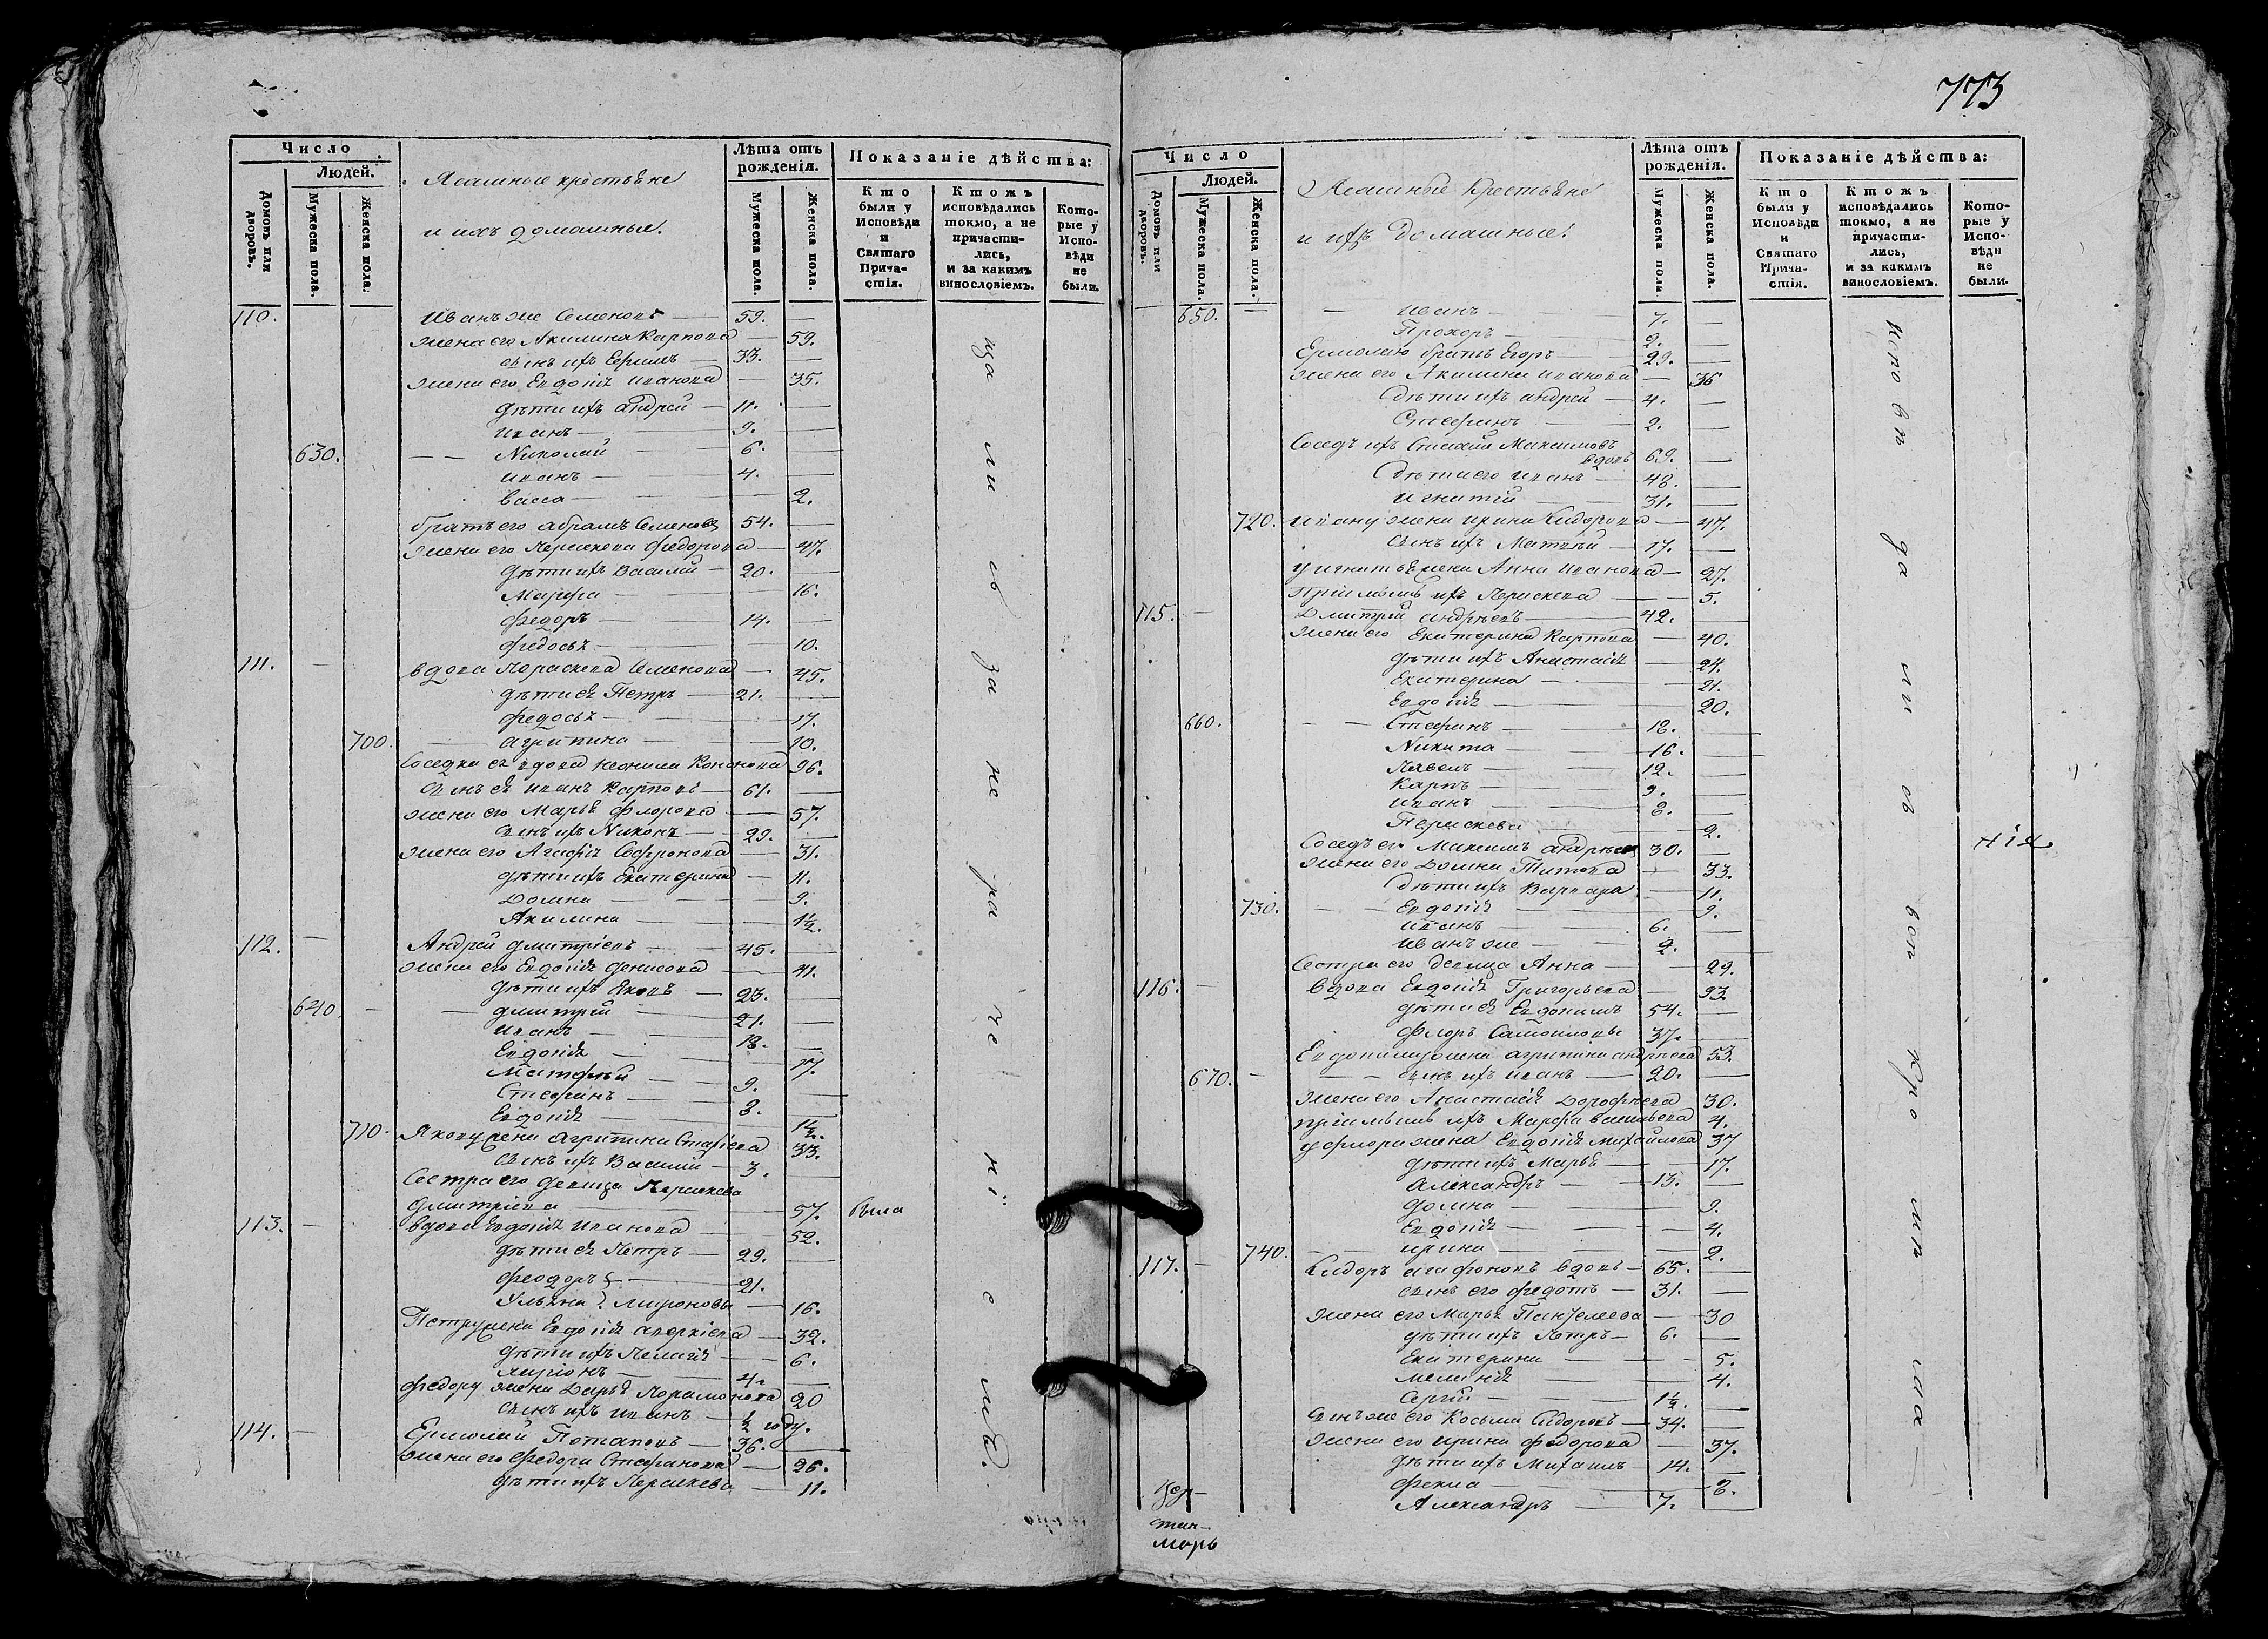 773
Число
Людей.
Домовъ или дворовъ.
Мужеска пола.
Женска пола.
Ясашные крестьяне
и ихъ домашные.
Лѣта отъ рожденія.
Мужеска пола.
Женска пола.
Показаніе дѣйства:
Кто были у Исповѣди и Святаго Причастія.
Ктожъ исповѣдались токмо, а не причастились, и за какимъ винословіемъ.
Которые у Исповѣди не были.
110. Иванъ же Семеновъ — 59. —
жена его Акилина Карпова — 59.
сынъ ихъ Ефимъ — 33. —
жена его Евдокія Иванова — 35.
дѣти ихъ Андрей — 11. —
Иванъ — 9. —
630. — — Николай — 6. —
Иванъ — 4. —
Васса — 2.
братъ его Абрамъ Семеновъ 54. —
жена его Параскева Федорова — 47.
дѣти ихъ Василій — 20. —
Марфа — 16.
Федоръ — 14. —
Федосья — 10.
111. — вдова Параскева Семенова — 45.
дѣти ея Петръ — 21. —
Федосья — 17.
700. — Агрипина — 10.
Соседка ея вдова Кононова 96.
сынъ ея Иванъ Карповъ — 61. —
жена его Марья Флорова — 57.
сынъ ихъ Никонъ — 29. —
жена его Агафія Софронова — 31.
дѣти ихъ Екатерина — 11.
Домна — 9.
Акилина — 1½.
112. — Андрей Дмитріевъ — 45. —
жена его Евдокія Денисова — 41.
дѣти ихъ Яковъ — 23. —
640. — — Дмитрій — 21. —
Иванъ — 18. —
Евдокія — 17.
Матфѣй — 9. —
Стефанъ — 3. —
Евдокія — 1½.
710. Якову жена Агрипина 33.
сынъ ихъ Василій — 3. —
Сестра его девица Параскева
Дмитріева — 57. была
113. — вдова Евдокія Иванова — 52.
дѣти ея Петръ — 29. —
Феодоръ — 21.
Ульяна } Мироновы — 16.
Петру жена Евдокія Аверкіева — 32.
дѣти ихъ Пелагія — 6.
Иріонъ — 4. —
Федору жена Дарья Парамонова 20
сынъ ихъ Иванъ — ½ году.
114. — Ермолай Потаповъ — 36. —
жена его Федора Стефанова — 26.
дѣти ихъ Параскева — 11.
ца ми съ за не ра че ні е мъ.
Число
Людей.
Домовъ или дворовъ.
Мужеска пола.
Женска пола.
Ясашные Крестьяне
и ихъ домашные.
Лѣта отъ рожденія.
Мужеска пола.
Женска пола.
Показаніе дѣйства:
Кто были у Исповѣди и Святаго Причастія.
Ктожъ исповѣдались токмо, а не причастились, и за какимъ винословіемъ.
Которые у Исповѣди не были.
650. — — Иванъ — 7. —
Прохоръ — 2. —
Ермолаю братъ Егоръ — 29. —
жена его Акилина Иванова — 36
Дѣти ихъ Андрей — 4. —
Стефанъ — 2. —
Соседъ ихъ Максимовъ
вдовъ 69. —
Дѣти его Иванъ — 48. —
Игнатій — 31. —
720. Ивану жена Ирина Сидорова — 47.
сынъ ихъ Матвѣй — 17. —
у Игнатья жена Анна Иванова — 27.
Пріимышъ ихъ Параскева — 5.
115. — Дмитрій Андрѣевъ — 42. —
жена его Екатерина Карпова — 40.
дѣти ихъ Анастасія — 24.
Екатерина — 21.
Евдокія — 20.
660. — — Стефанъ — 18. —
Никита — 16. —
Павелъ — 12. —
Карпъ — 9. —
Иванъ — 8. —
Параскева — 2.
Соседъ его Максимъ Андрѣевъ 30. —
жена его Домна Титова — 33.
Дѣти ихъ Варвара — 11.
730. — — Евдокія — 9.
Иванъ — 6. —
Иванъ же — 2. —
Сестра его девица Анна — 29.
116. — вдова Евдокія Григорьева — 93.
дѣти ея Евдокимъ 54. —
Флоръ Самойловы 37. —
Евдокиму жена Агрипина Андрѣева 53.
670. — — — сынъ ихъ Иванъ — 20. —
жена его Анастасія Дорофѣева 30.
пріимышъ ихъ Марфа Васильева 4.
у Флора жена Евдокія Михайлова 37
дѣти ихъ Марья — 17.
Александръ — 13. —
Домна — 9.
Евдокія — 4.
740. — — Ирина — 2.
117. — Сидоръ Агафоновъ вдовъ — 65. —
сынъ его Федотъ — 31. —
жена его Марья Пантелеева — 30
дѣти ихъ Петръ — 6. —
Екатерина — 5.
Меланія — 4.
Сергій — 1½. —
сынъ же его Косьма Сидоровъ — 34. —
жена его Ирина Федорова — 37.
дѣти ихъ Михаилъ — 14. —
Фекла — 8.
Александръ — 7. —
нія